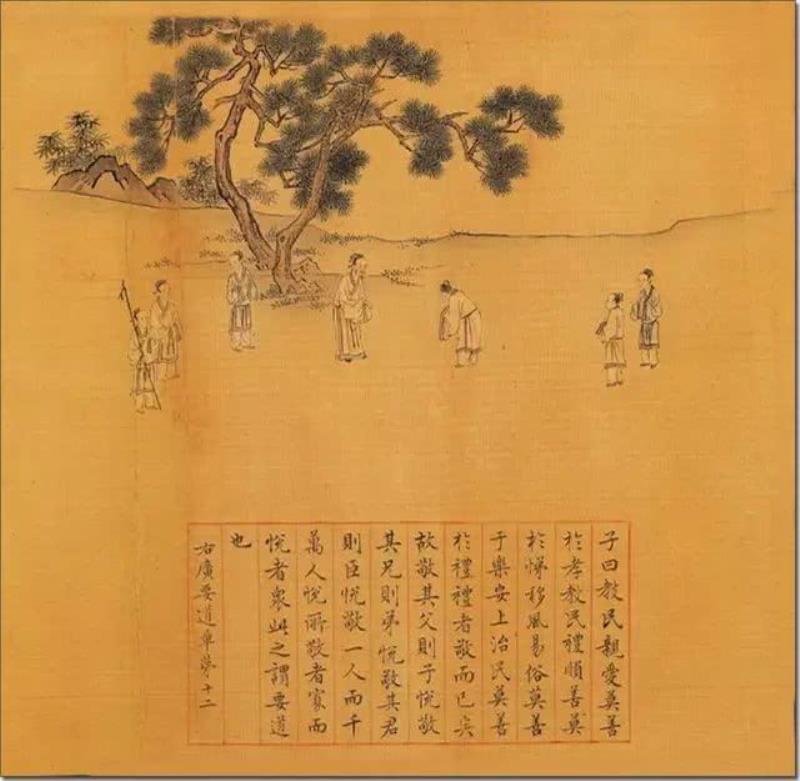 子曰教民親愛莫善
於孝教民禮順善莫
於悌移風易俗莫善
于樂安上治民莫善
於禮禮者敬而已矣
故敬其父則子悅敬
其兄則弟悅敬其君
則臣悅敬一人而千
萬人悅所敬者寡而
悅者衆此之謂要道
也
右廣要道章第十二